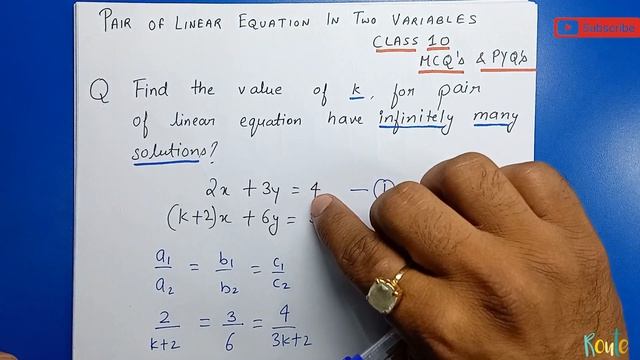 PAIR OF LINEAR EQUATION IN TWO VARIABLES
CLASS 10
MCQ's & PYQ's
Subscribe
Q Find the value of k, for pair
of linear equation have infinitely many
solutions?
2x + 3y = 4 — ①
(k+2)x + 6y =
a₁/a₂ = b₁/b₂ = c₁/c₂
2/k+2 = 3/6 = 4/3k+2
Route